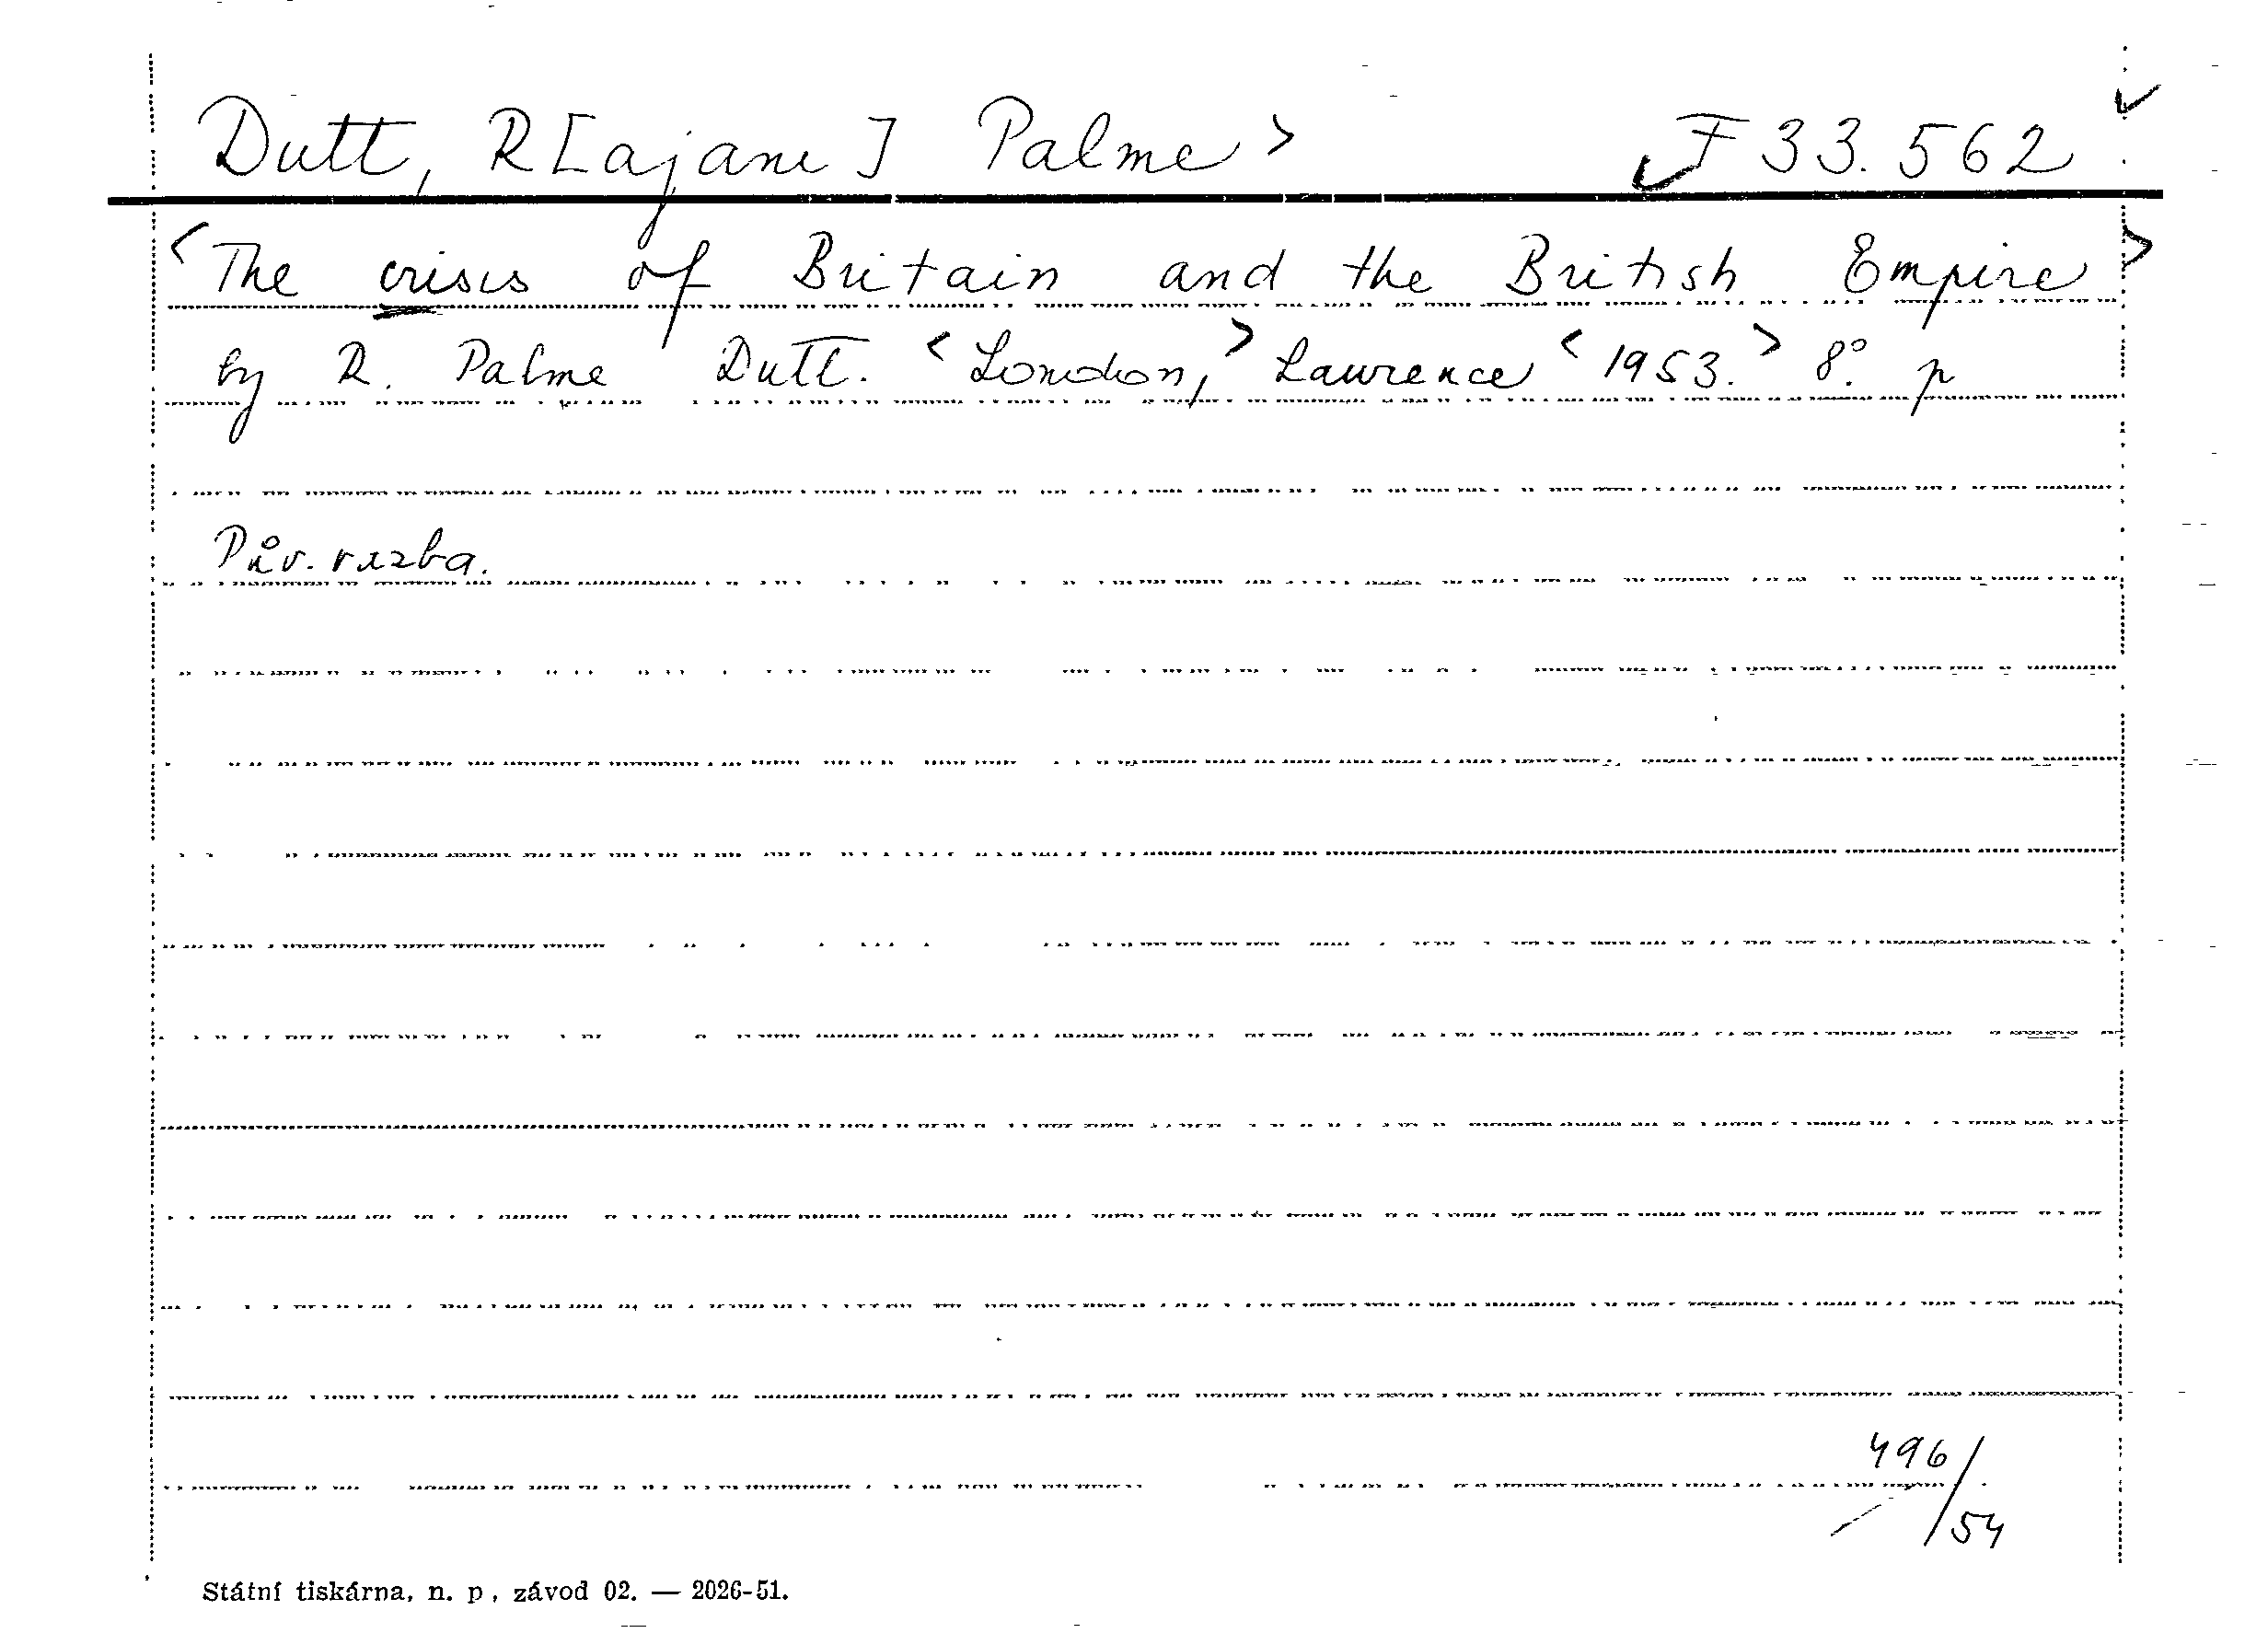 Dutt, R[ajani] Palme> F 33.562
<The crisis of Britain and the British Empire>
by R. Palme Dutt. <London,> Lawrence <1953.> 8°. p
Pův. vazba.
496/54
Státní tiskárna, n. p., závod 02. — 2026-51.